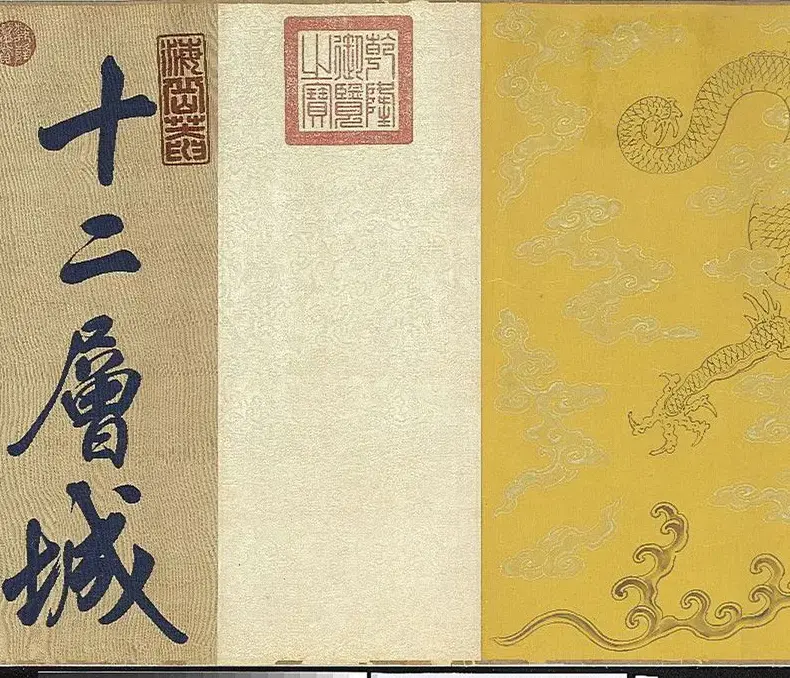 乾隆
御覽
之寶
十二層城